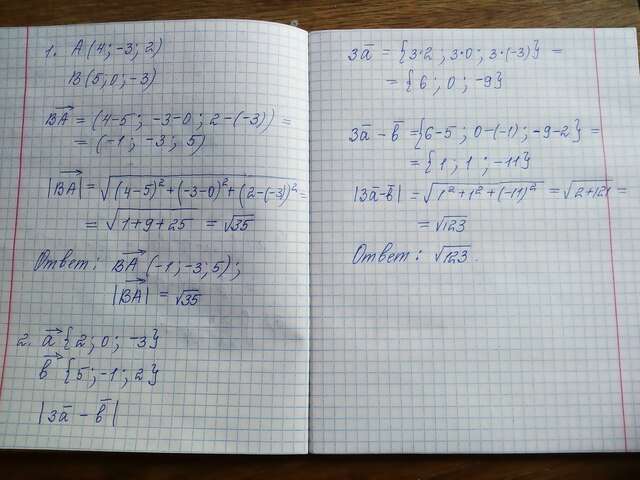 1. A (4; -3; 2)
B (5; 0; -3)
BA = (4-5; -3-0; 2-(-3)) =
= (-1; -3; 5)
|BA| = √(4-5)² + (-3-0)² + (2-(-3))² =
= √1+9+25 = √35
Ответ: BA (-1; -3; 5);
|BA| = √35
2. a {2; 0; -3}
b {5; -1; 2}
|3a - b|
3a = {3·2; 3·0; 3·(-3)} =
= {6; 0; -9}
3a - b = {6-5; 0-(-1); -9-2} =
= {1; 1; -11}
|3a-b| = √1²+1²+(-11)² = √2+121 =
= √123
Ответ: √123.